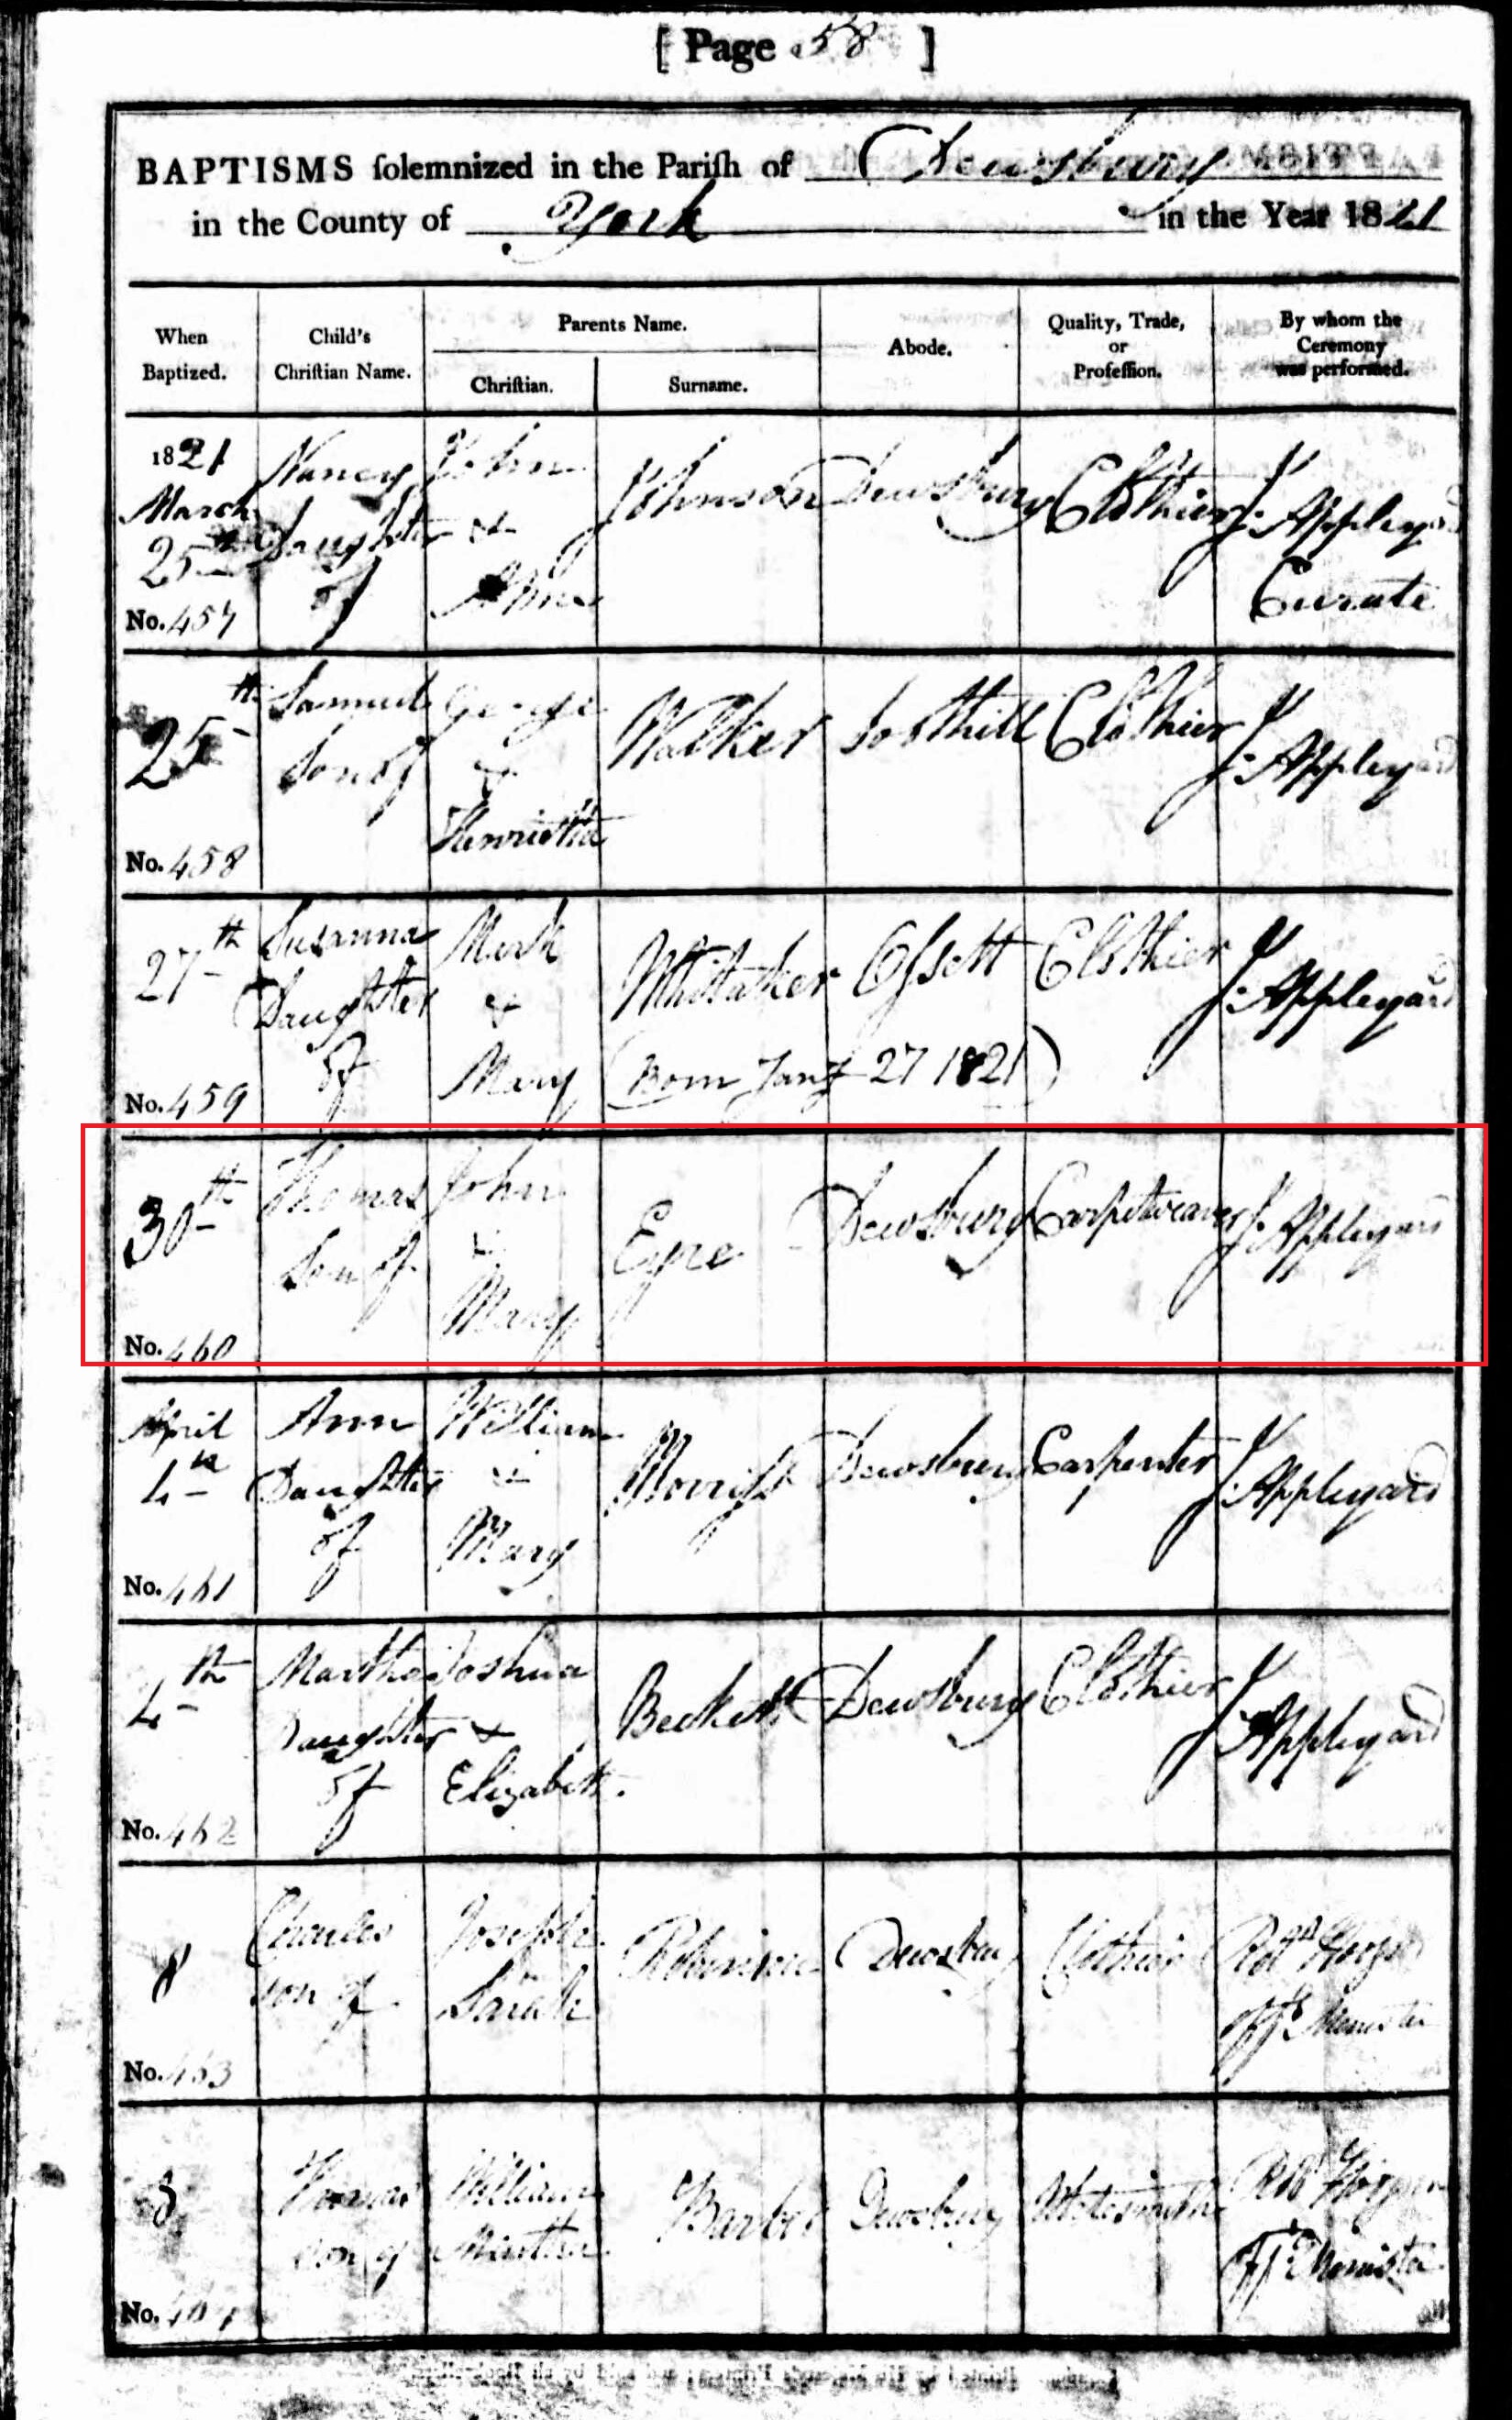 [ Page 58 ]
BAPTISMS ſolemnized in the Pariſh of Dewsbury
in the County of York in the Year 1821
When Baptized.
Child's Chriſtian Name.
Parents Name.
Chriſtian.
Surname.
Abode.
Quality, Trade, or Profeſſion.
By whom the Ceremony was performed.
1821 March 25th No. 457
Nancy Daughter of
John & Ann
Johnson
Dewsbury
Clothier
J. Appleyard Curate
25th No. 458
Samuel Son of
George & Henrietta
Walker
Soothill
Clothier
J. Appleyard
27th No. 459
Susanna Daughter of
Mark & Mary
Whittaker
Oſsett
Clothier
J. Appleyard
(Born Jany 27 1821)
30th No. 460
Thomas Son of
John & Mary
Eyre
Dewsbury
Carpetweaver
J. Appleyard
April 4th No. 461
Ann Daughter of
William & Mary
Morriſs
Dewsbury
Carpenter
J. Appleyard
4th No. 462
Martha Daughter of
Joshua & Elizabeth.
Beckett
Dewsbury
Clothier
J. Appleyard
8 No. 463
Charles son of
Joseph Sarah
Robinson
Dewsbury
Clothier
Offg Minister
8 No. 464
Thomas son of
William Martha
Barber
Dewsbury
Offg Minister